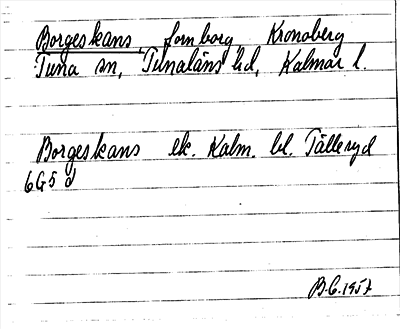 Borgeskans fornborg Kronoberg
Tuna sn, Tunaläns hd, Kalmar l.
Borgeskans ek. Kalm. bl. Tälleryd
6G5d
B.C. 1957